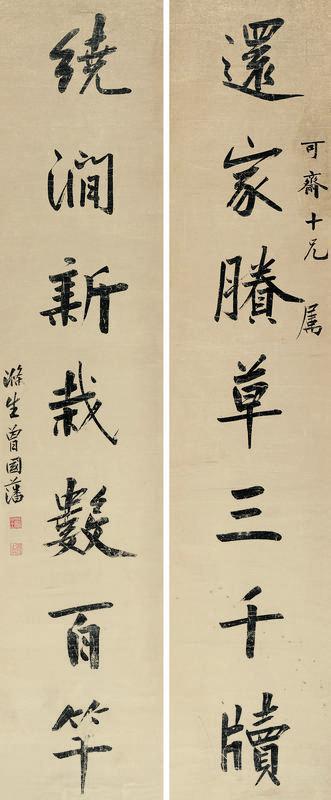 可齋十兄屬
還家賸草三千牘
繞澗新栽數百竿
滌生曾國藩